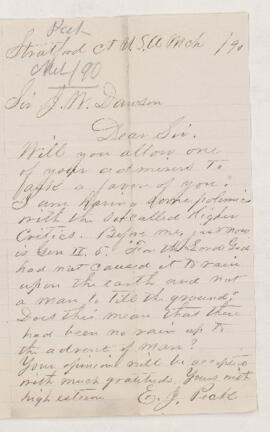 Peck
Stratford Ct U.S.A Mch /90
Mch/90
Sir J. W. Dawson
Dear Sir.
Will you allow one
of your admirers to
ask a favor of you?
I am having some polemics
with the So called Higher
Critics. Before me, just now
is Gen II. 5. "For the Lord God
had not caused it to rain
upon the earth and not
a man to till the ground,"
Does this mean that there
had been no rain up to
the advent of man?
Your opinion will be accepted
with much gratitude. Yours with
high esteem E. J. Peck